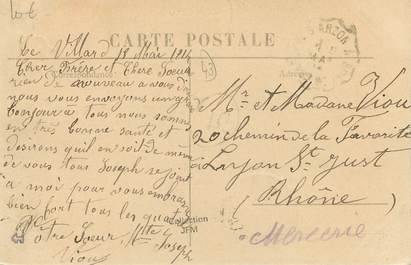 CARTE POSTALE
Le Villard 18 Mai
Cher Frère et Chere Soeur
rien de nouveau a vous dire
nous vous envoyons un grand
bonjour a tous nous somm
en très bonne santé et
desirons qu'il en soit de même
de vous tous Joseph se joint
a moi pour vous embrass
bien fort tous les quatre
Votre Soeur, Mte Joseph
Viou
Correspondance
Adresse
43
Mr et Madame Viou
20 chemin de la Favorite
Lyon St Just
Rhône
Mercerie
Collection
JFM